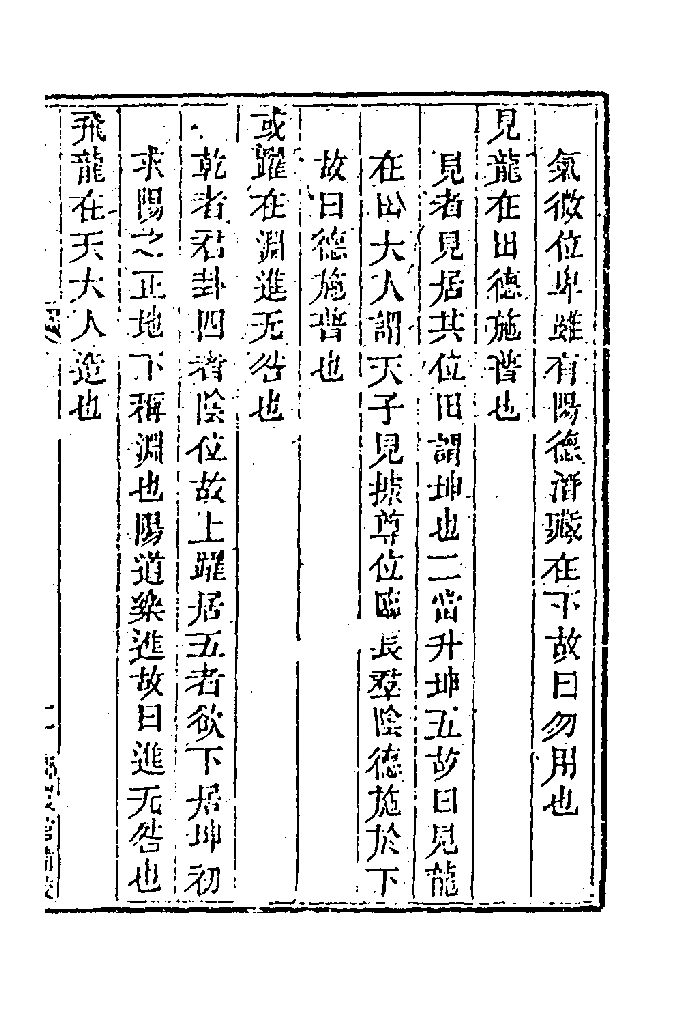 氣微位卑雖有陽德潛藏在下故曰勿用也
見龍在田德施普也
見者見居其位田謂坤也二當升坤五故曰見龍
在田大人謂天子見據尊位臨長羣陰德施於下
故曰德施普也
或躍在淵進无咎也
乾者君卦四者陰位故上躍居五者欲下居坤初
求陽之正地下稱淵也陽道樂進故曰進无咎也
飛龍在天大人造也